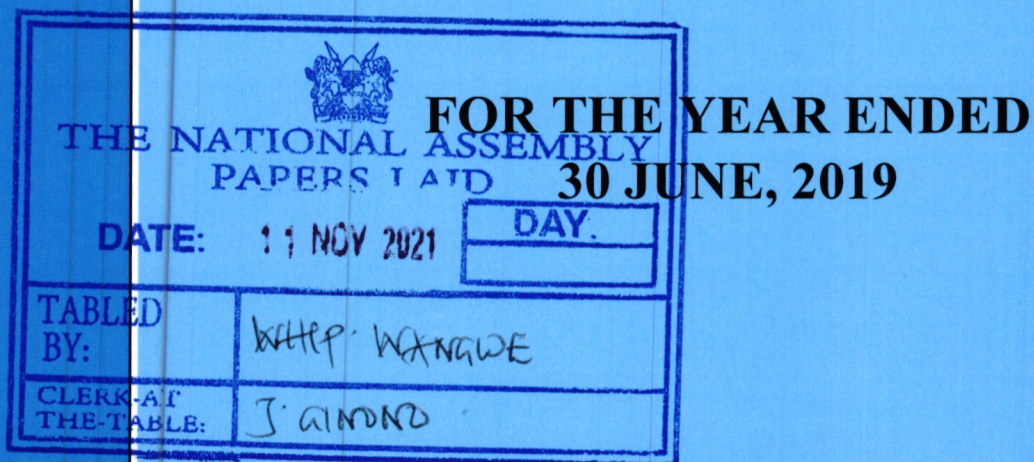 FOR THE YEAR ENDED
30 JUNE, 2019
THE NATIONAL ASSEMBLY
PAPERS LAID
DATE: 11 NOV 2021
DAY.
TABLED
BY:
WHIP. WANGWE
CLERK-AT
THE-TABLE:
J.